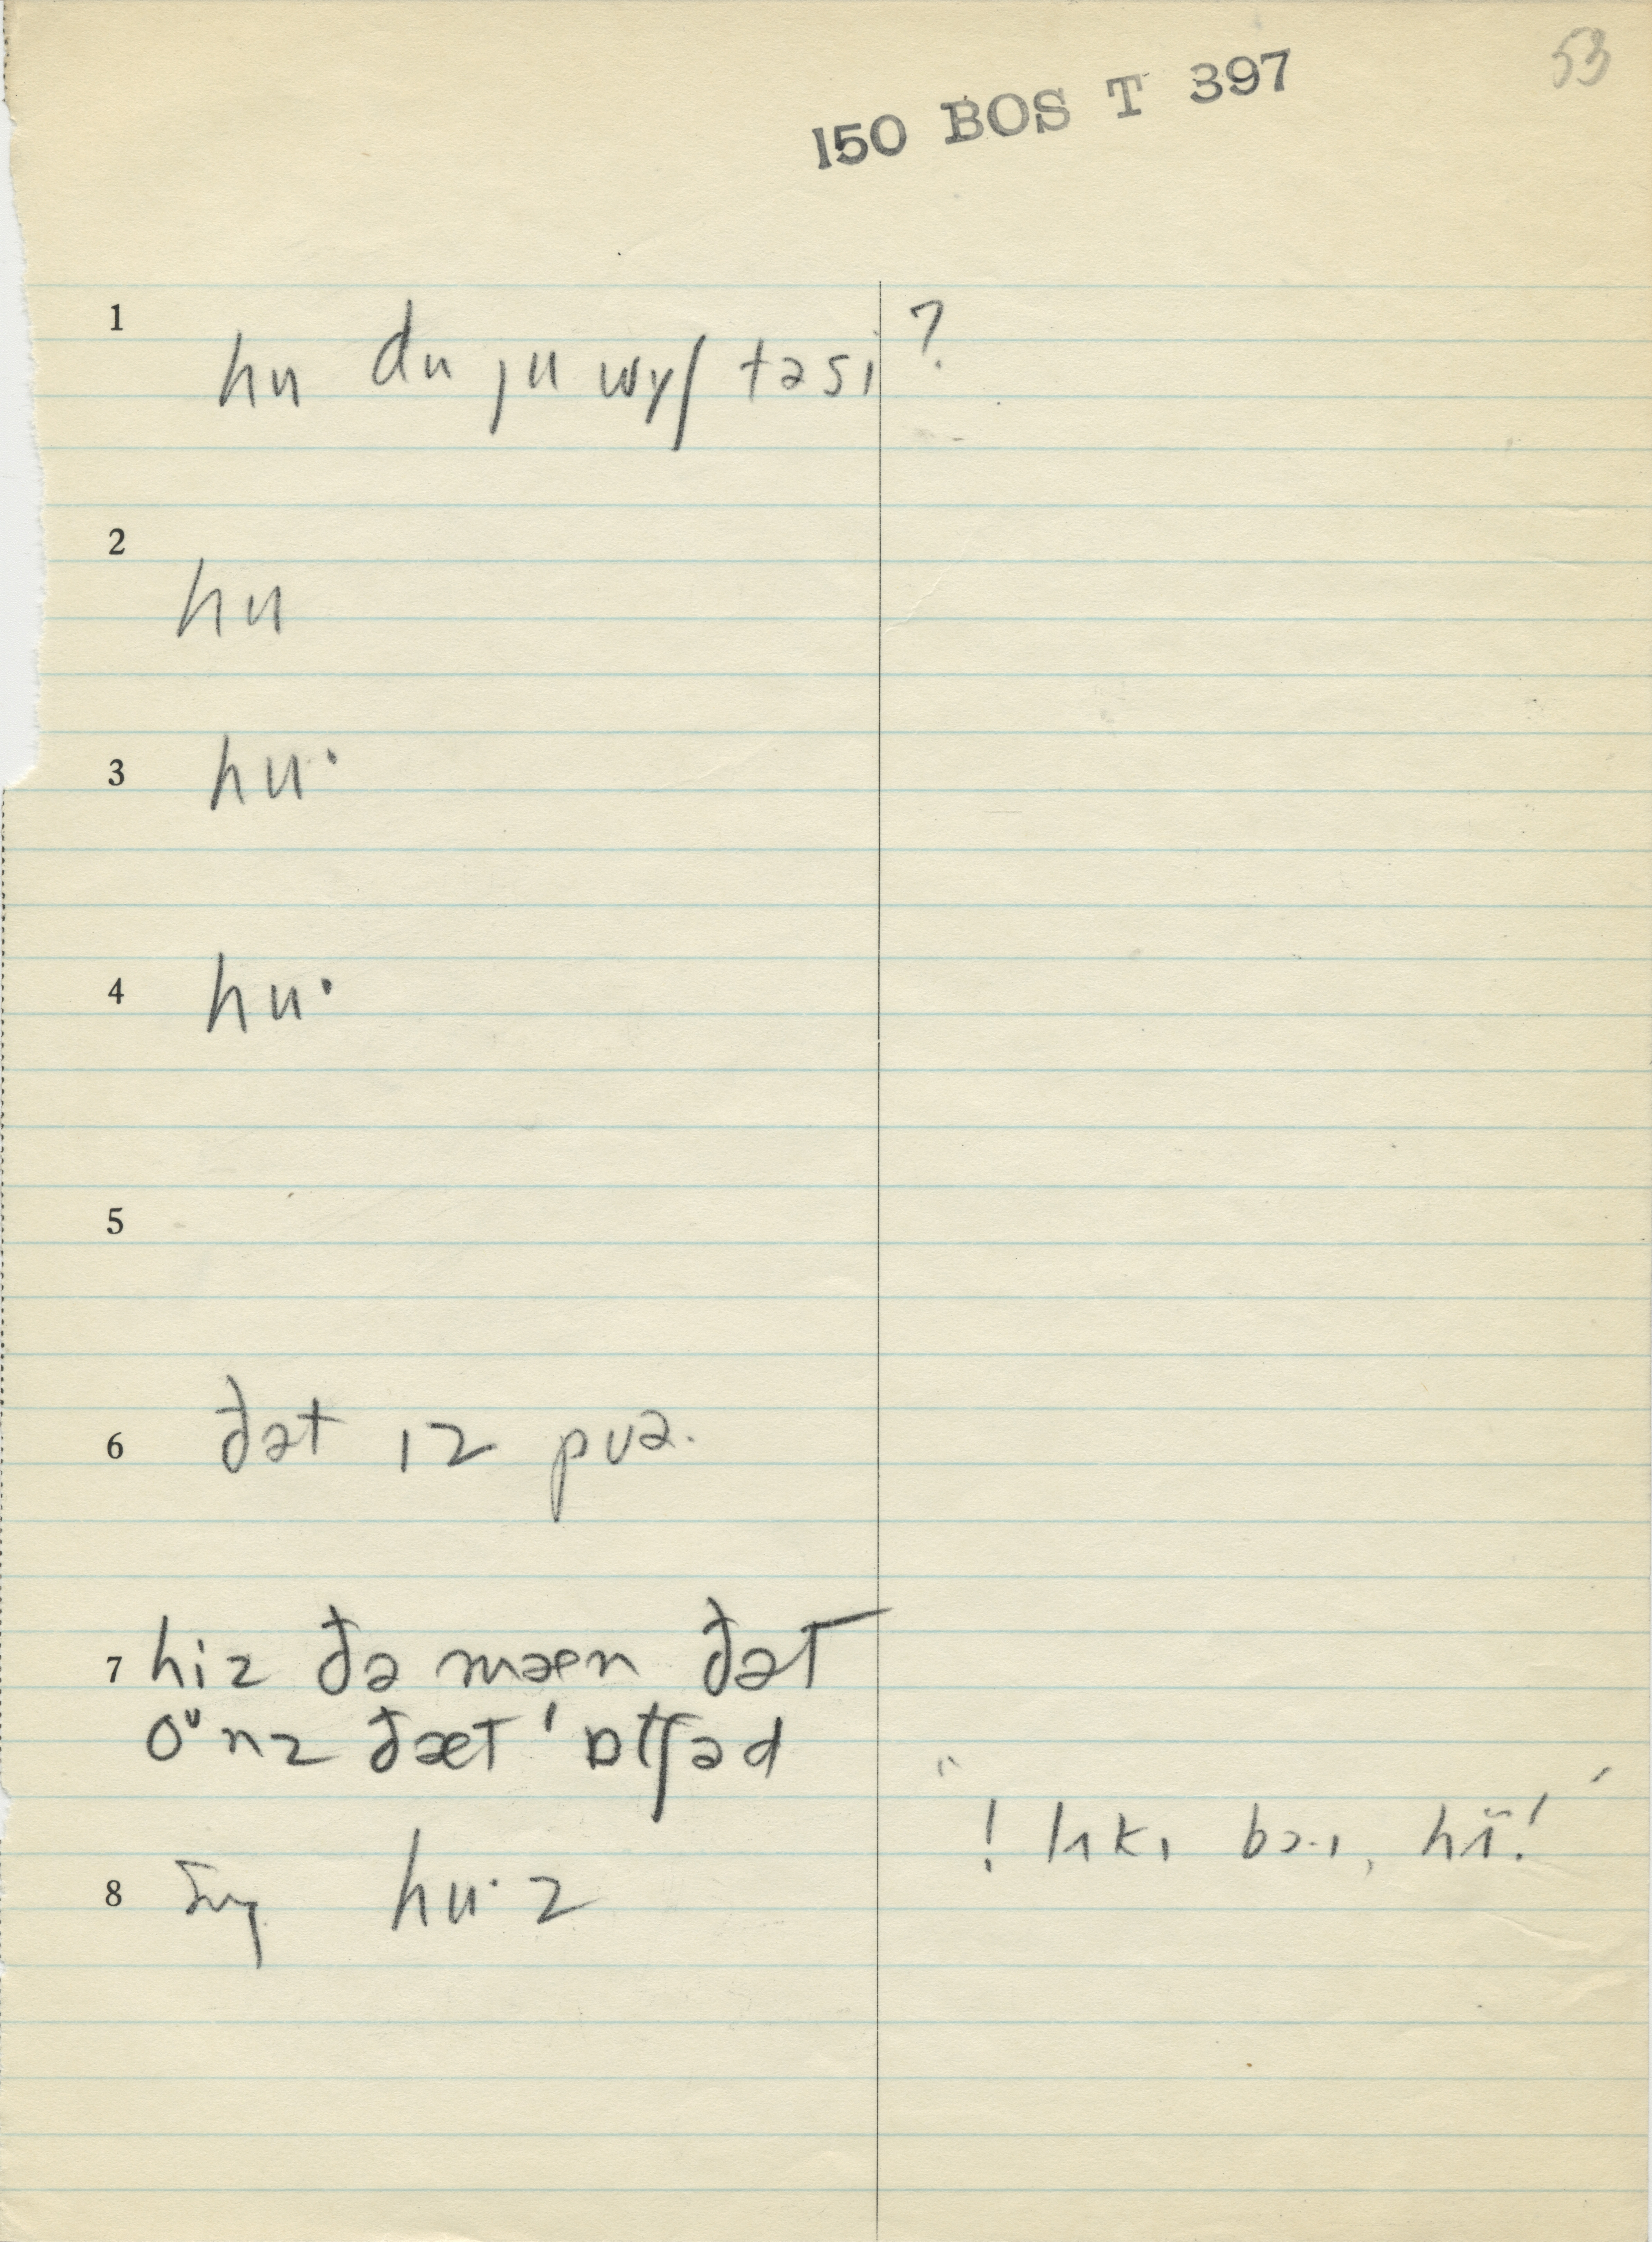 53
150 BOS T 397
1 hu du ju wɪʃ təsi ?
2 hu
3 hu·
4 hu·
5
6 ðət ɪz pʊə.
7 hiz ðə mæn ðət
oᵘnz ðæt ˈɒtʃəd
8 hu·z